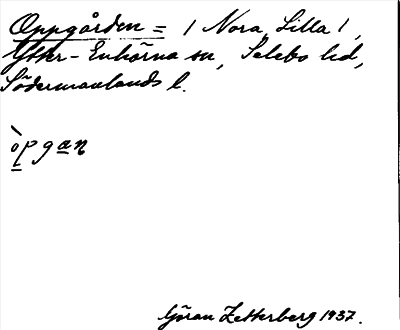 Oppgården = / Nora, Lilla /,
Ytter-Enhörna sn, Selebo hd,
Södermanlands l.
òpgan
Göran Zetterberg 1937.